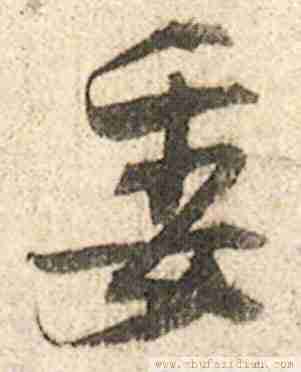 委
www.shufazidian.com